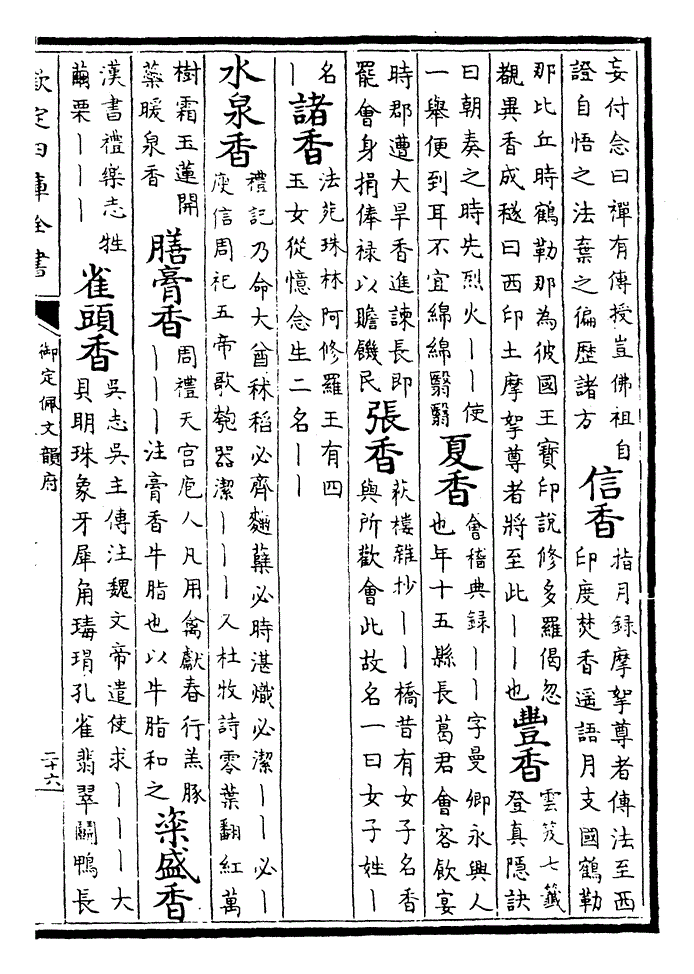 妄付念曰禪有傳授豈佛祖自
證自悟之法棄之徧歴諸方
信香
指月録摩拏尊者傳法至西
印度焚香遥語月支國鶴勒
那比丘時鶴勒那為彼國王寶印說修多羅偈忽
覩異香成穟曰西印土摩拏尊者將至此丨丨也
豐香
雲笈七籖
登真隠訣
曰朝奏之時先烈火丨丨使
一舉便到耳不宜綿綿翳翳
夏香
會稽典録丨丨字曼卿永興人
也年十五縣長葛君會客飲宴
時郡遭大旱香進諫長即
罷會身捐俸禄以贍饑民
張香
萩樓雜抄丨丨橋昔有女子名香
與所歡會此故名一曰女子姓丨
名
丨
諸香
法苑珠林阿修羅王有四
玉女從憶念生二名丨丨
水泉香
禮記乃命大酋秫稻必齊麯蘖必時湛熾必潔丨丨必丨
庾信周祀五帝歌匏器潔丨丨丨又杜牧詩零葉翻紅萬
樹霜玉蓮開
蘂暖泉香
膳膏香
周禮天官庖人凡用禽獻春行羔豚
丨丨丨注膏香牛脂也以牛脂和之
粢盛香
漢書禮樂志牲
繭栗丨丨丨
雀頭香
吳志吳主傳注魏文帝遣使求丨丨丨大
貝明珠象牙犀角瑇瑁孔雀翡翠鬬鴨長
欽定四庫全書
御定佩文韻府
二十六